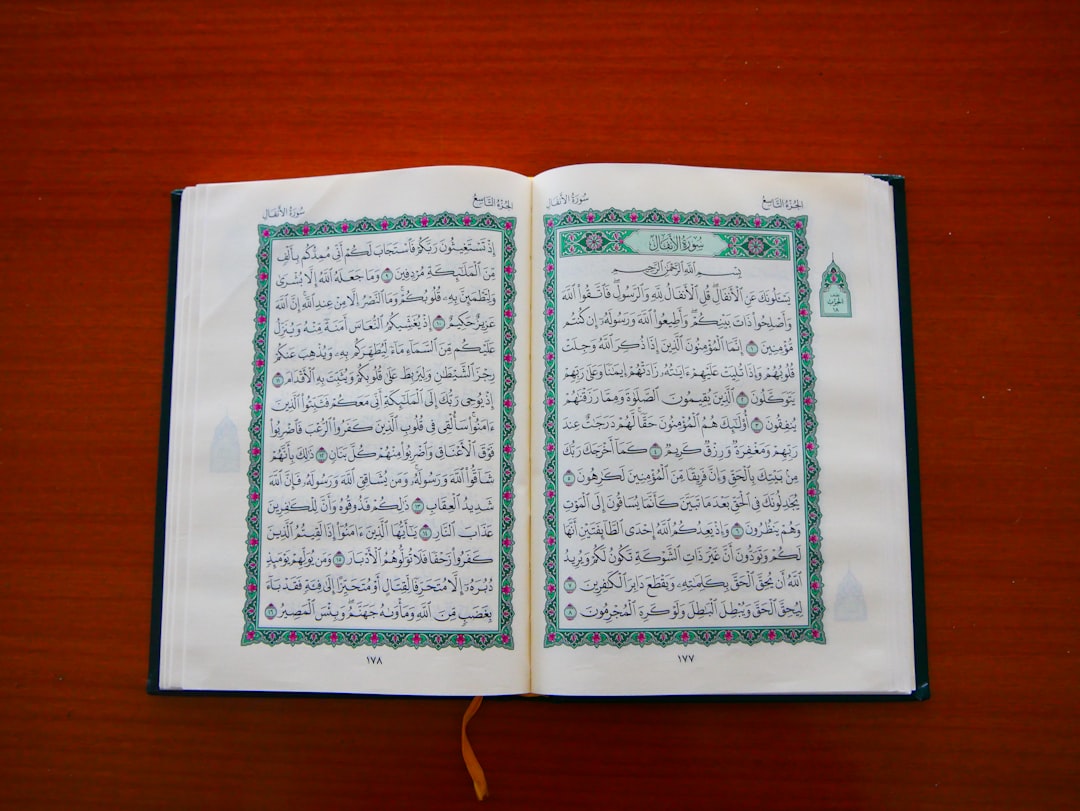 الجزء التاسع
سورة الأنفال
سُورَةُ الأَنفَالِ
بِسْمِ اللَّهِ الرَّحْمَٰنِ الرَّحِيمِ
يَسْـَٔلُونَكَ عَنِ الْأَنفَالِ ۖ قُلِ الْأَنفَالُ لِلَّهِ وَالرَّسُولِ ۖ فَاتَّقُوا اللَّهَ
وَأَصْلِحُوا ذَاتَ بَيْنِكُمْ ۖ وَأَطِيعُوا اللَّهَ وَرَسُولَهُ إِن كُنتُم
مُّؤْمِنِينَ ١ إِنَّمَا الْمُؤْمِنُونَ الَّذِينَ إِذَا ذُكِرَ اللَّهُ وَجِلَتْ
قُلُوبُهُمْ وَإِذَا تُلِيَتْ عَلَيْهِمْ ءَايَٰتُهُ زَادَتْهُمْ إِيمَٰنًا وَعَلَىٰ رَبِّهِمْ
يَتَوَكَّلُونَ ٢ الَّذِينَ يُقِيمُونَ الصَّلَوٰةَ وَمِمَّا رَزَقْنَٰهُمْ
يُنفِقُونَ ٣ أُولَٰٓئِكَ هُمُ الْمُؤْمِنُونَ حَقًّا ۚ لَّهُمْ دَرَجَٰتٌ عِندَ
رَبِّهِمْ وَمَغْفِرَةٌ وَرِزْقٌ كَرِيمٌ ٤ كَمَا أَخْرَجَكَ رَبُّكَ
مِن بَيْتِكَ بِالْحَقِّ وَإِنَّ فَرِيقًا مِّنَ الْمُؤْمِنِينَ لَكَٰرِهُونَ ٥
يُجَٰدِلُونَكَ فِي الْحَقِّ بَعْدَ مَا تَبَيَّنَ كَأَنَّمَا يُسَاقُونَ إِلَى الْمَوْتِ
وَهُمْ يَنظُرُونَ ٦ وَإِذْ يَعِدُكُمُ اللَّهُ إِحْدَى الطَّآئِفَتَيْنِ أَنَّهَا
لَكُمْ وَتَوَدُّونَ أَنَّ غَيْرَ ذَاتِ الشَّوْكَةِ تَكُونُ لَكُمْ وَيُرِيدُ
اللَّهُ أَن يُحِقَّ الْحَقَّ بِكَلِمَٰتِهِ وَيَقْطَعَ دَابِرَ الْكَٰفِرِينَ ٧
لِيُحِقَّ الْحَقَّ وَيُبْطِلَ الْبَٰطِلَ وَلَوْ كَرِهَ الْمُجْرِمُونَ ٨
الحزب
١٨
١٧٧
الجزء التاسع
سورة الأنفال
إِذْ تَسْتَغِيثُونَ رَبَّكُمْ فَاسْتَجَابَ لَكُمْ أَنِّي مُمِدُّكُم بِأَلْفٍ
مِّنَ الْمَلَٰٓئِكَةِ مُرْدِفِينَ ٩ وَمَا جَعَلَهُ اللَّهُ إِلَّا بُشْرَىٰ
وَلِتَطْمَئِنَّ بِهِ قُلُوبُكُمْ ۚ وَمَا النَّصْرُ إِلَّا مِنْ عِندِ اللَّهِ ۚ إِنَّ اللَّهَ
عَزِيزٌ حَكِيمٌ ١٠ إِذْ يُغَشِّيكُمُ النُّعَاسَ أَمَنَةً مِّنْهُ وَيُنَزِّلُ
عَلَيْكُم مِّنَ السَّمَآءِ مَآءً لِّيُطَهِّرَكُم بِهِ وَيُذْهِبَ عَنكُمْ
رِجْزَ الشَّيْطَٰنِ وَلِيَرْبِطَ عَلَىٰ قُلُوبِكُمْ وَيُثَبِّتَ بِهِ الْأَقْدَامَ ١١
إِذْ يُوحِي رَبُّكَ إِلَى الْمَلَٰٓئِكَةِ أَنِّي مَعَكُمْ فَثَبِّتُوا الَّذِينَ
ءَامَنُوا ۚ سَأُلْقِي فِي قُلُوبِ الَّذِينَ كَفَرُوا الرُّعْبَ فَاضْرِبُوا
فَوْقَ الْأَعْنَاقِ وَاضْرِبُوا مِنْهُمْ كُلَّ بَنَانٍ ١٢ ذَٰلِكَ بِأَنَّهُمْ
شَآقُّوا اللَّهَ وَرَسُولَهُ ۚ وَمَن يُشَاقِقِ اللَّهَ وَرَسُولَهُ فَإِنَّ اللَّهَ
شَدِيدُ الْعِقَابِ ١٣ ذَٰلِكُمْ فَذُوقُوهُ وَأَنَّ لِلْكَٰفِرِينَ
عَذَابَ النَّارِ ١٤ يَٰٓأَيُّهَا الَّذِينَ ءَامَنُوا إِذَا لَقِيتُمُ الَّذِينَ
كَفَرُوا زَحْفًا فَلَا تُوَلُّوهُمُ الْأَدْبَارَ ١٥ وَمَن يُوَلِّهِمْ يَوْمَئِذٍ
دُبُرَهُ إِلَّا مُتَحَرِّفًا لِّقِتَالٍ أَوْ مُتَحَيِّزًا إِلَىٰ فِئَةٍ فَقَدْ بَآءَ
بِغَضَبٍ مِّنَ اللَّهِ وَمَأْوَىٰهُ جَهَنَّمُ ۖ وَبِئْسَ الْمَصِيرُ ١٦
١٧٨